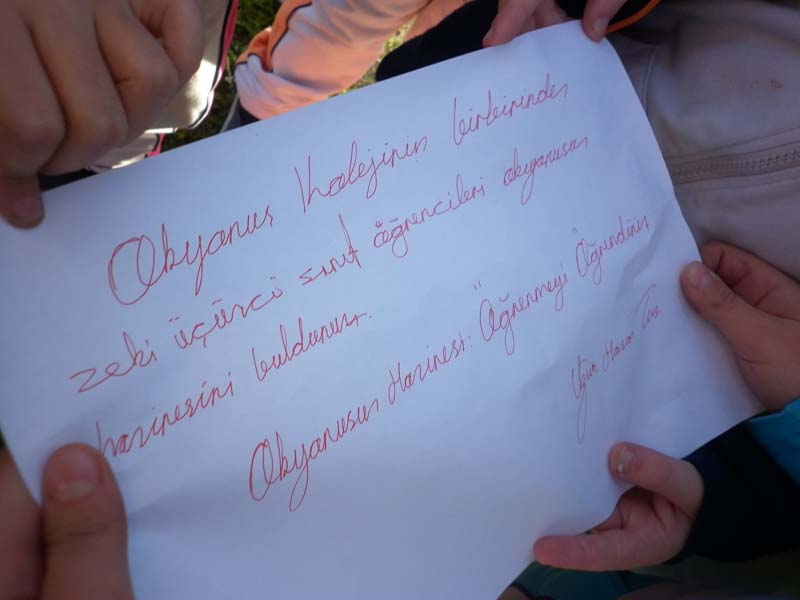 Okyanus Kolejinin birbirinden
zeki üçüncü sınıf öğrencileri okyanusun
hazinesini buldunuz.
Okyanusun Hazinesi: "Öğrenmeyi Öğrendiniz
Hasan